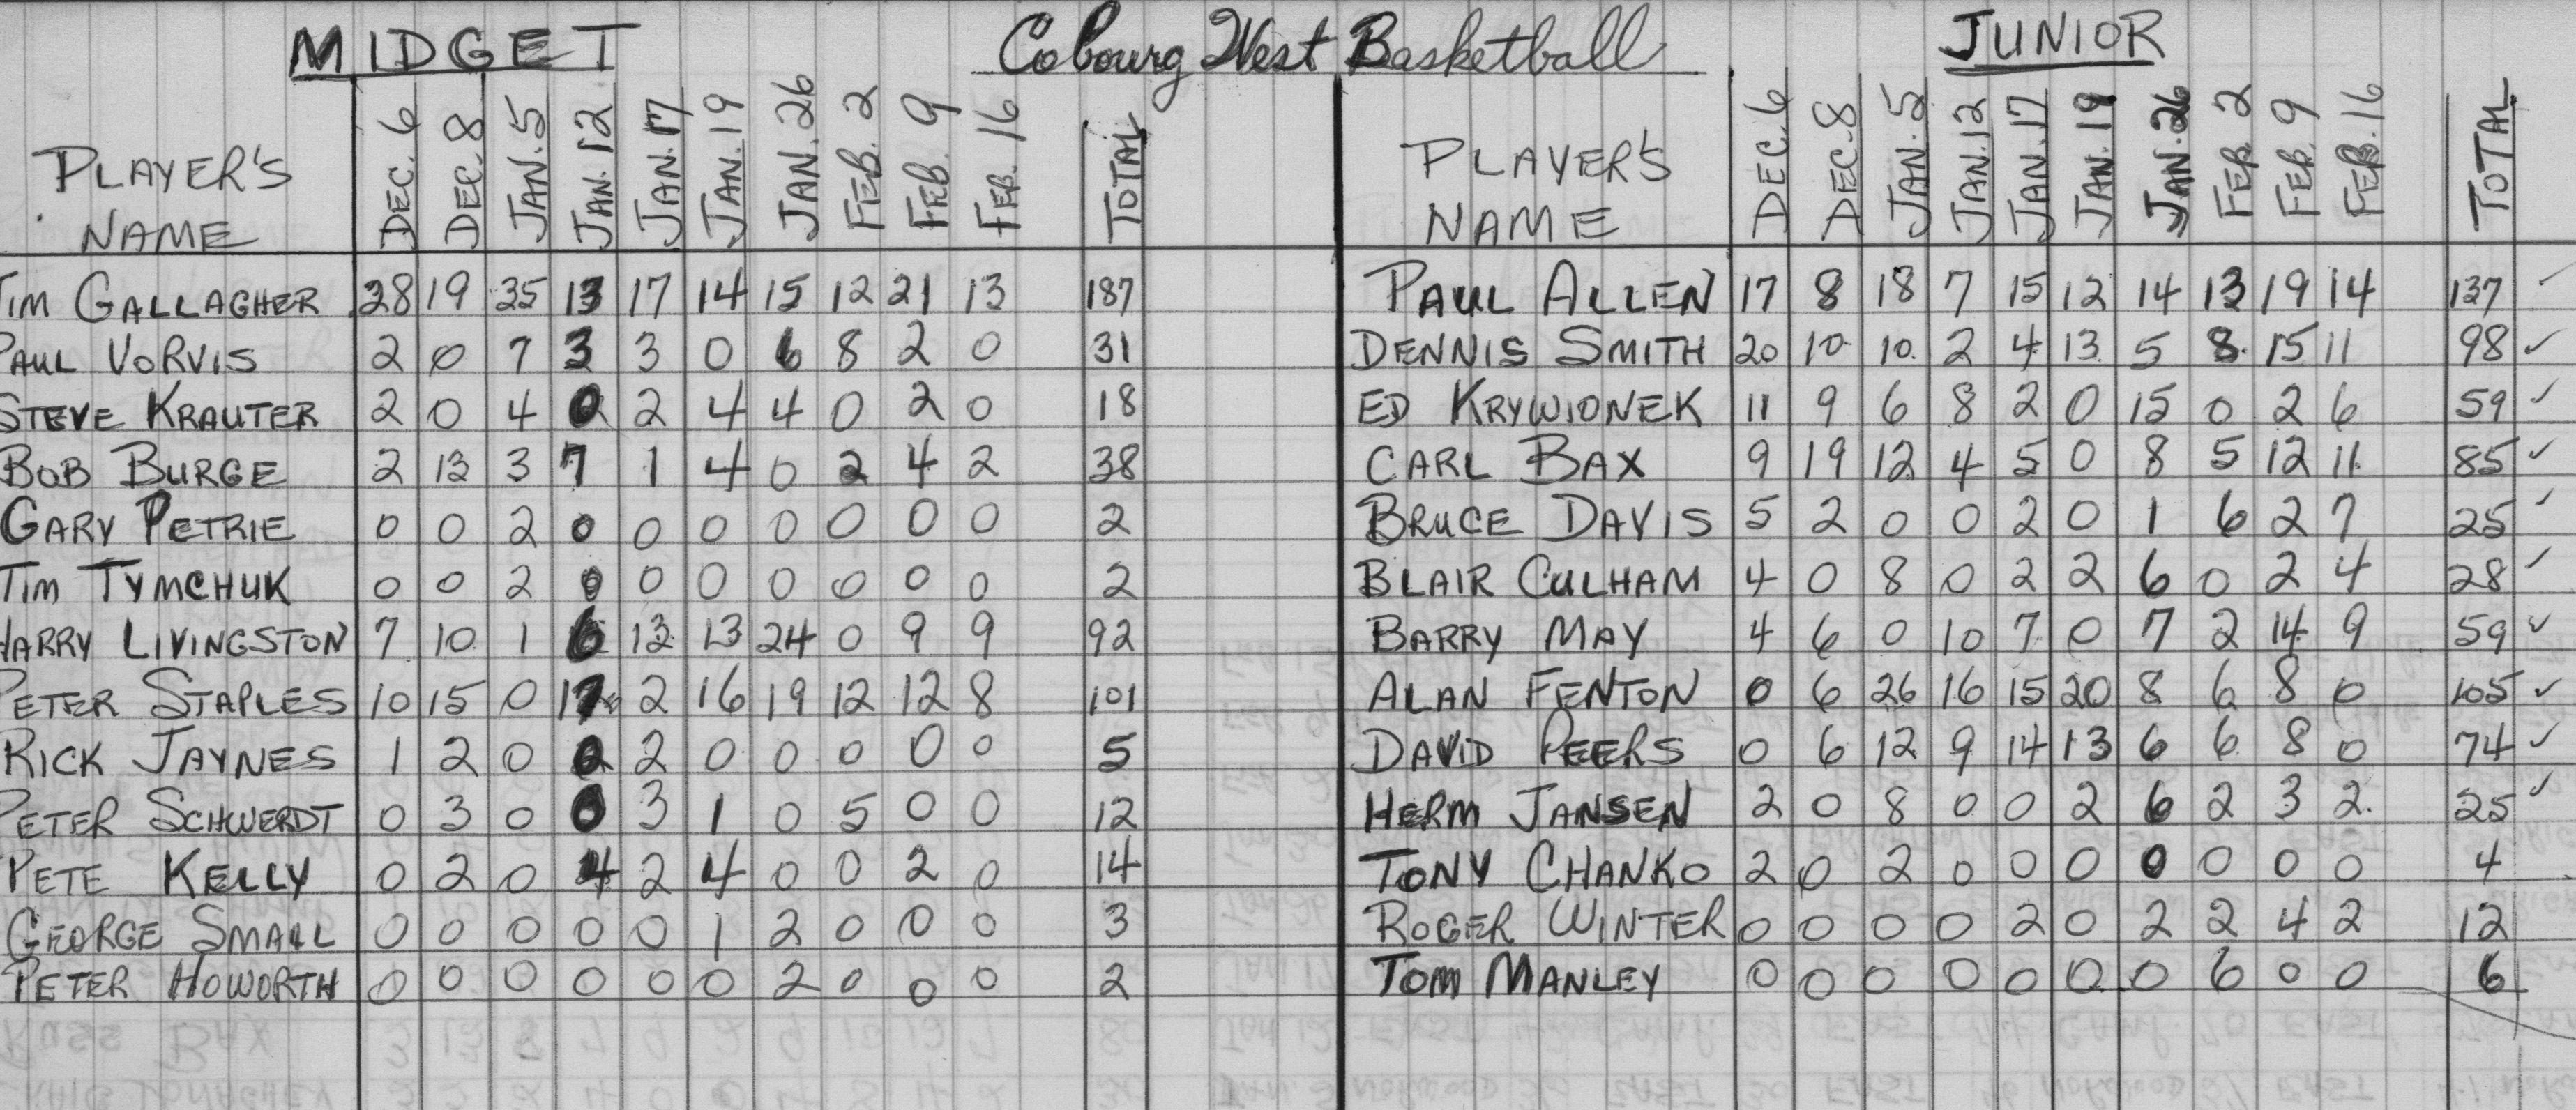 MIDGET Cobourg West Basketball JUNIOR
PLAYER'S NAME DEC. 6 DEC. 8 JAN. 5 JAN. 12 JAN. 17 JAN. 19 JAN. 26 FEB. 2 FEB. 9 FEB. 16 TOTAL PLAYER'S NAME DEC. 6 DEC. 8 JAN. 5 JAN. 12 JAN. 17 JAN. 19 JAN. 26 FEB. 2 FEB. 9 FEB. 16 TOTAL
TIM GALLAGHER 28 19 35 13 17 14 15 12 21 13 187 PAUL ALLEN 17 8 18 7 15 12 14 13 19 14 137 ✓
PAUL VORVIS 2 0 7 3 3 0 6 8 2 0 31 DENNIS SMITH 20 10 10 2 4 13 5 8 15 11 98 ✓
STEVE KRAUTER 2 0 4 0 2 4 4 0 2 0 18 ED KRYWIONEK 11 9 6 8 2 0 15 0 2 6 59 ✓
BOB BURGE 2 13 3 7 1 4 0 2 4 2 38 CARL BAX 9 19 12 4 5 0 8 5 12 11 85 ✓
GARY PETRIE 0 0 2 0 0 0 0 0 0 0 2 BRUCE DAVIS 5 2 0 0 2 0 1 6 2 7 25 ✓
TIM TYMCHUK 0 0 2 0 0 0 0 0 0 0 2 BLAIR CULHAM 4 0 8 0 2 2 6 0 2 4 28 ✓
HARRY LIVINGSTON 7 10 1 6 13 13 24 0 9 9 92 BARRY MAY 4 6 0 10 7 0 7 2 14 9 59 ✓
PETER STAPLES 10 15 0 17 2 16 19 12 12 8 101 ALAN FENTON 0 6 26 16 15 20 8 6 8 0 105 ✓
RICK JAYNES 1 2 0 0 2 0 0 0 0 0 5 DAVID PEERS 0 6 12 9 14 13 6 6 8 0 74 ✓
PETER SCHWERDT 0 3 0 0 3 1 0 5 0 0 12 HERM JANSEN 2 0 8 0 0 2 6 2 3 2 25 ✓
PETE KELLY 0 2 0 4 2 4 0 0 2 0 14 TONY CHANKO 2 0 2 0 0 0 0 0 0 0 4
GEORGE SMALL 0 0 0 0 0 1 2 0 0 0 3 ROGER WINTER 0 0 0 0 2 0 2 2 4 2 12
PETER HOWORTH 0 0 0 0 0 0 2 0 0 0 2 TOM MANLEY 0 0 0 0 0 0 0 6 0 0 6